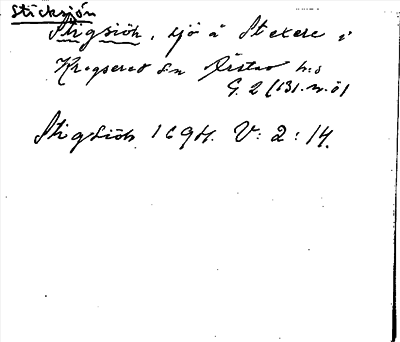 Sticksjön
Stigsiöh, sjö å Stexere i
Krogsered sn Årstad hd
G. 2 (131. n. ö)
Stigsiöh 1694. V: 2: 14.